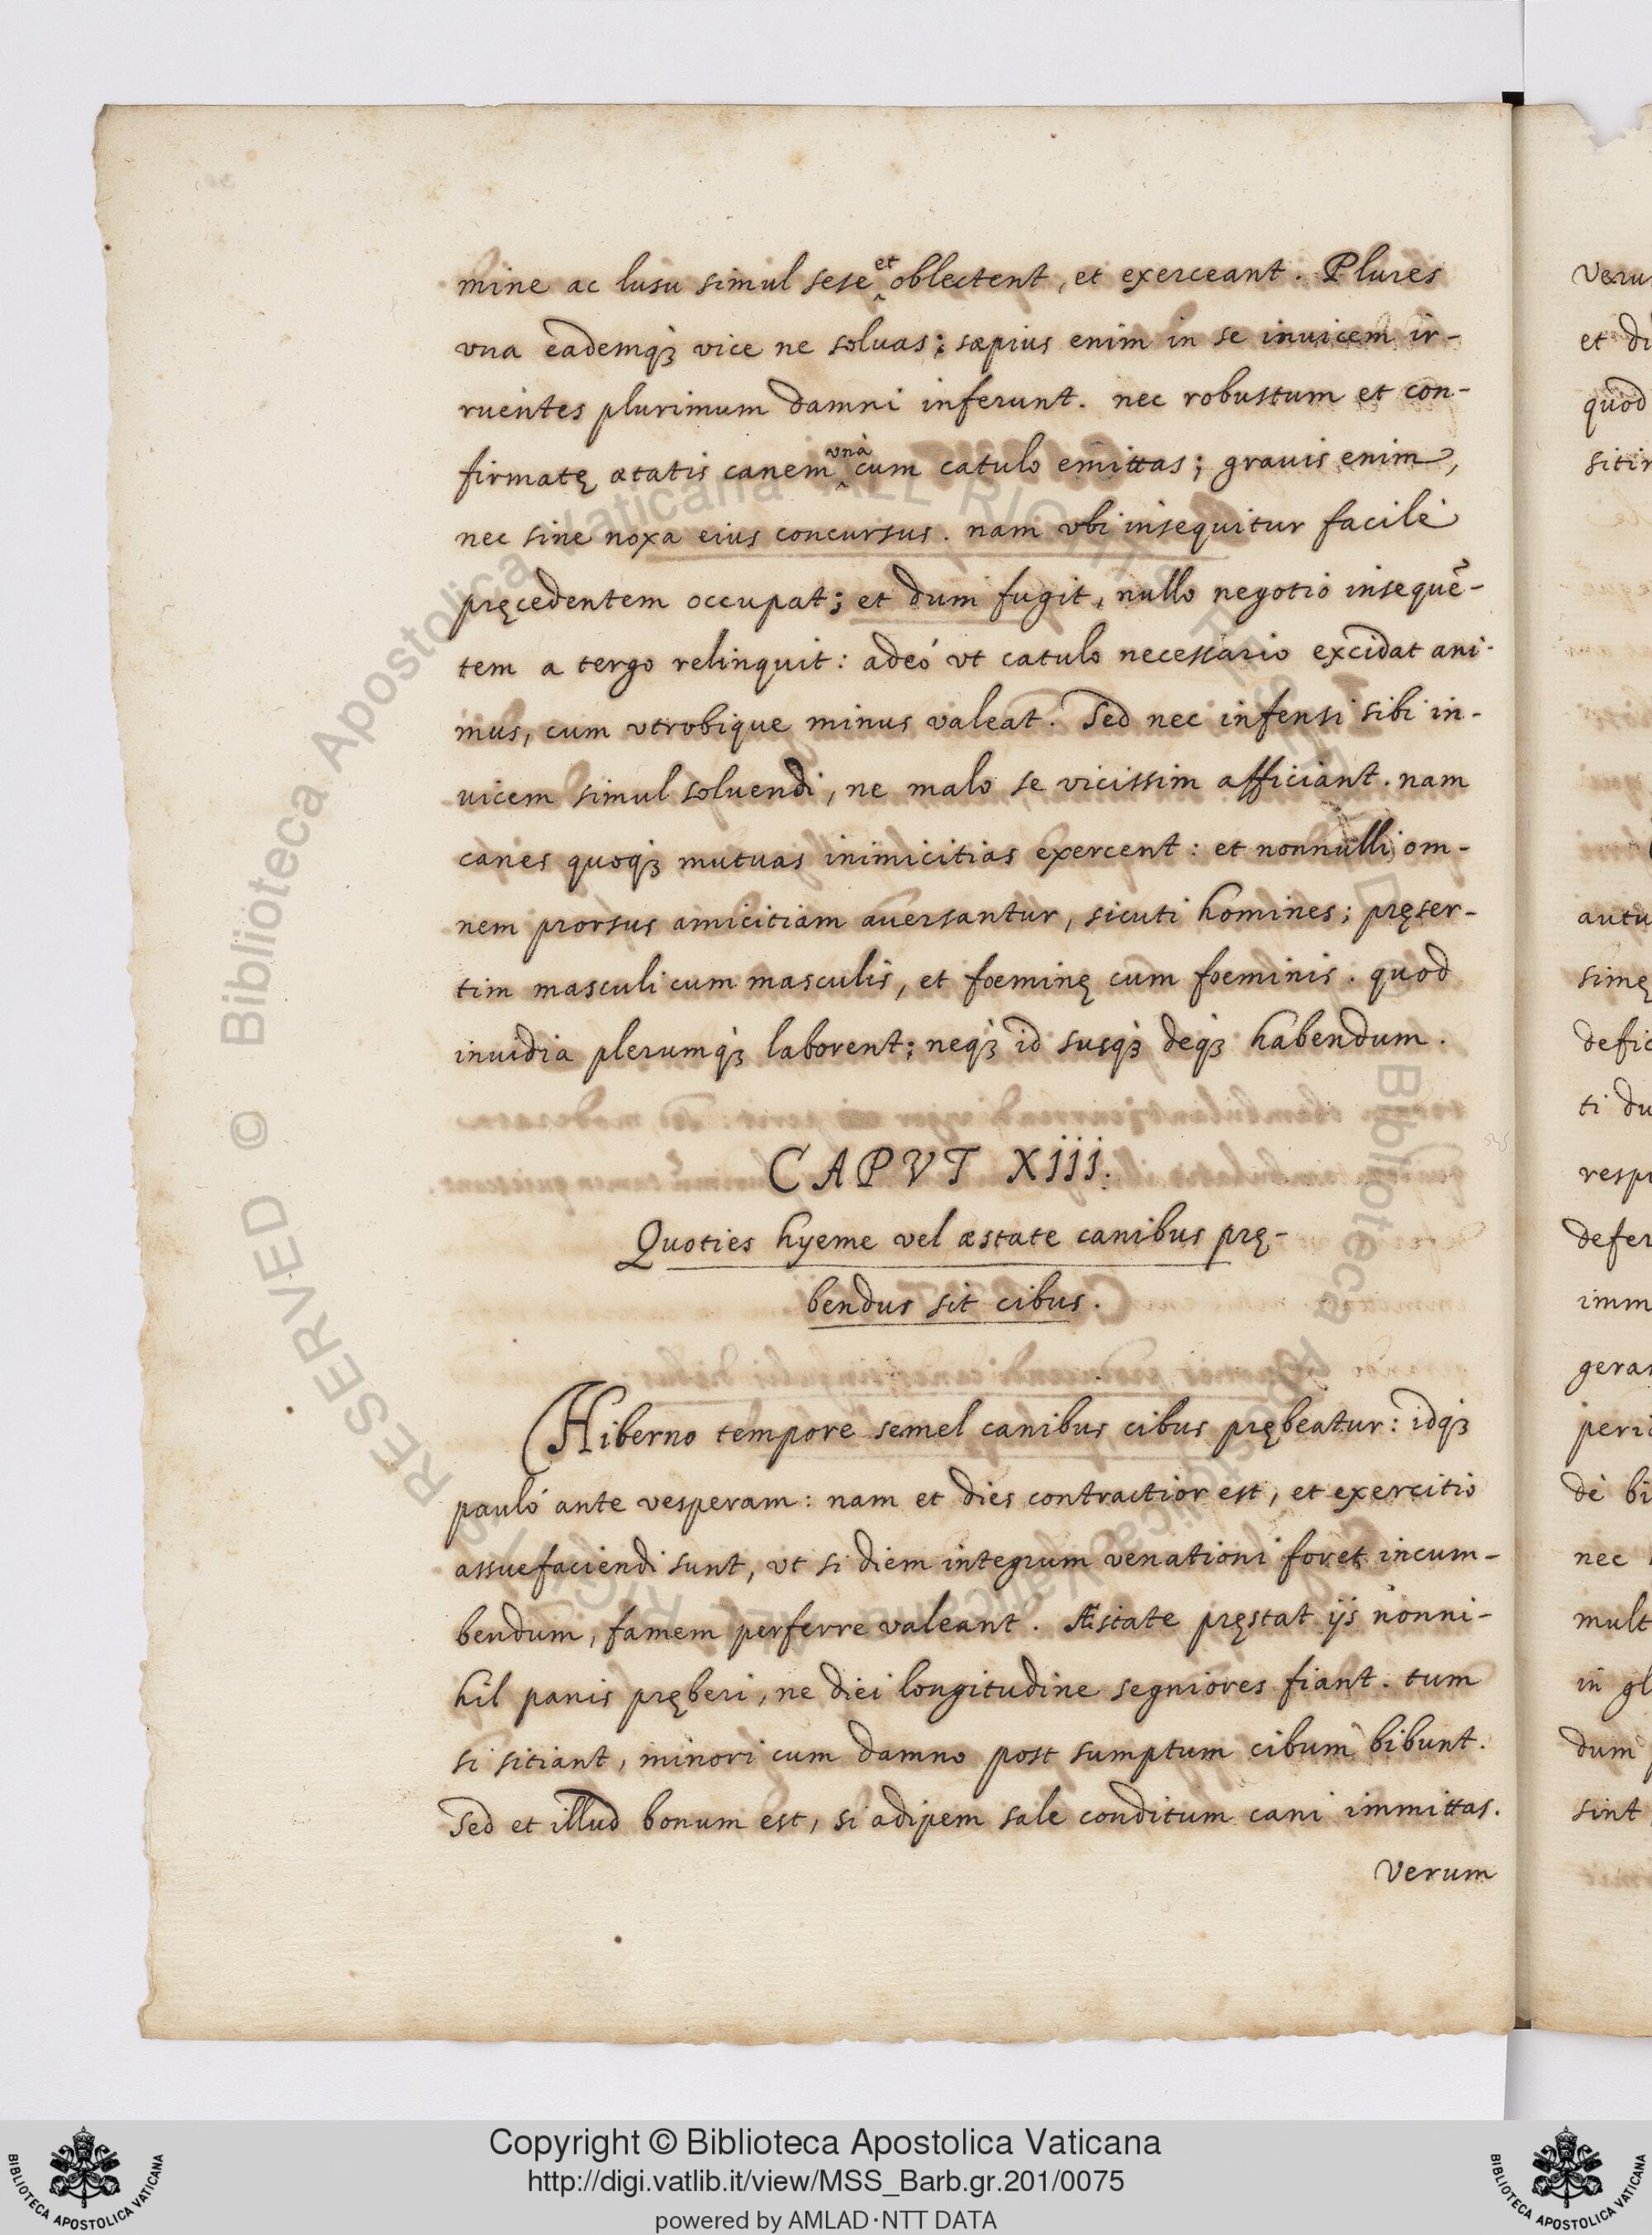 mine ac lusu simul sese et oblectent, et exerceant. Plures
vna eademq3 vice ne soluas; sæpius enim in se inuicem ir-
ruentes plurimum damni inferunt. nec robustum et con-
firmatę ætatis canem vnà cum catulo emittas; grauis enim,
nec sine noxa eius concursus. nam vbi insequitur facilè
pręcedentem occupat; et dum fugit, nullo negotio insequē-
tem a tergo relinquit: adeó vt catulo necessario excidat ani-
mus, cum vtrobique minus valeat. Sed nec infensi sibi in-
uicem simul soluendi, ne malo se vicissim afficiant. nam
canes quoq3 mutuas inimicitias exercent: et nonnulli om-
nem prorsus amicitiam auersantur, sicuti homines; pręser-
tim masculi cum masculis, et foeminę cum foeminis. quod
inuidia plerumq3 laborent; neq3 id susq3 deq3 habendum.
CAPVT Xiij.
Quoties hyeme vel æstate canibus prę-
bendus sit cibus.
Hiberno tempore semel canibus cibus prębeatur: idq3
pauló ante vesperam: nam et dies contractior est, et exercitio
assuefaciendi sunt, vt si diem integrum venationi foret incum-
bendum, famem perferre valeant. Æstate pręstat ijs nonni-
hil panis pręberi, ne diei longitudine segniores fiant. tum
si sitiant, minori cum damno post sumptum cibum bibunt.
Sed et illud bonum est, si adipem sale conditum cani immittas.
Verum
Veru
et di
quod
sitir
autu
simę
defic
ti du
respi
defer
imm
gera
peric
dè bi
nec
mult
in gl
dum
sint
RESERVED © Biblioteca Apostolica Vaticana ALL RIGHTS RESERVED © Biblioteca Apostolica Vaticana ALL RIGHTS
Copyright © Biblioteca Apostolica Vaticana
http://digi.vatlib.it/view/MSS_Barb.gr.201/0075
powered by AMLAD·NTT DATA
BIBLIOTECA APOSTOLICA VATICANA
BIBLIOTECA APOSTOLICA VATICANA